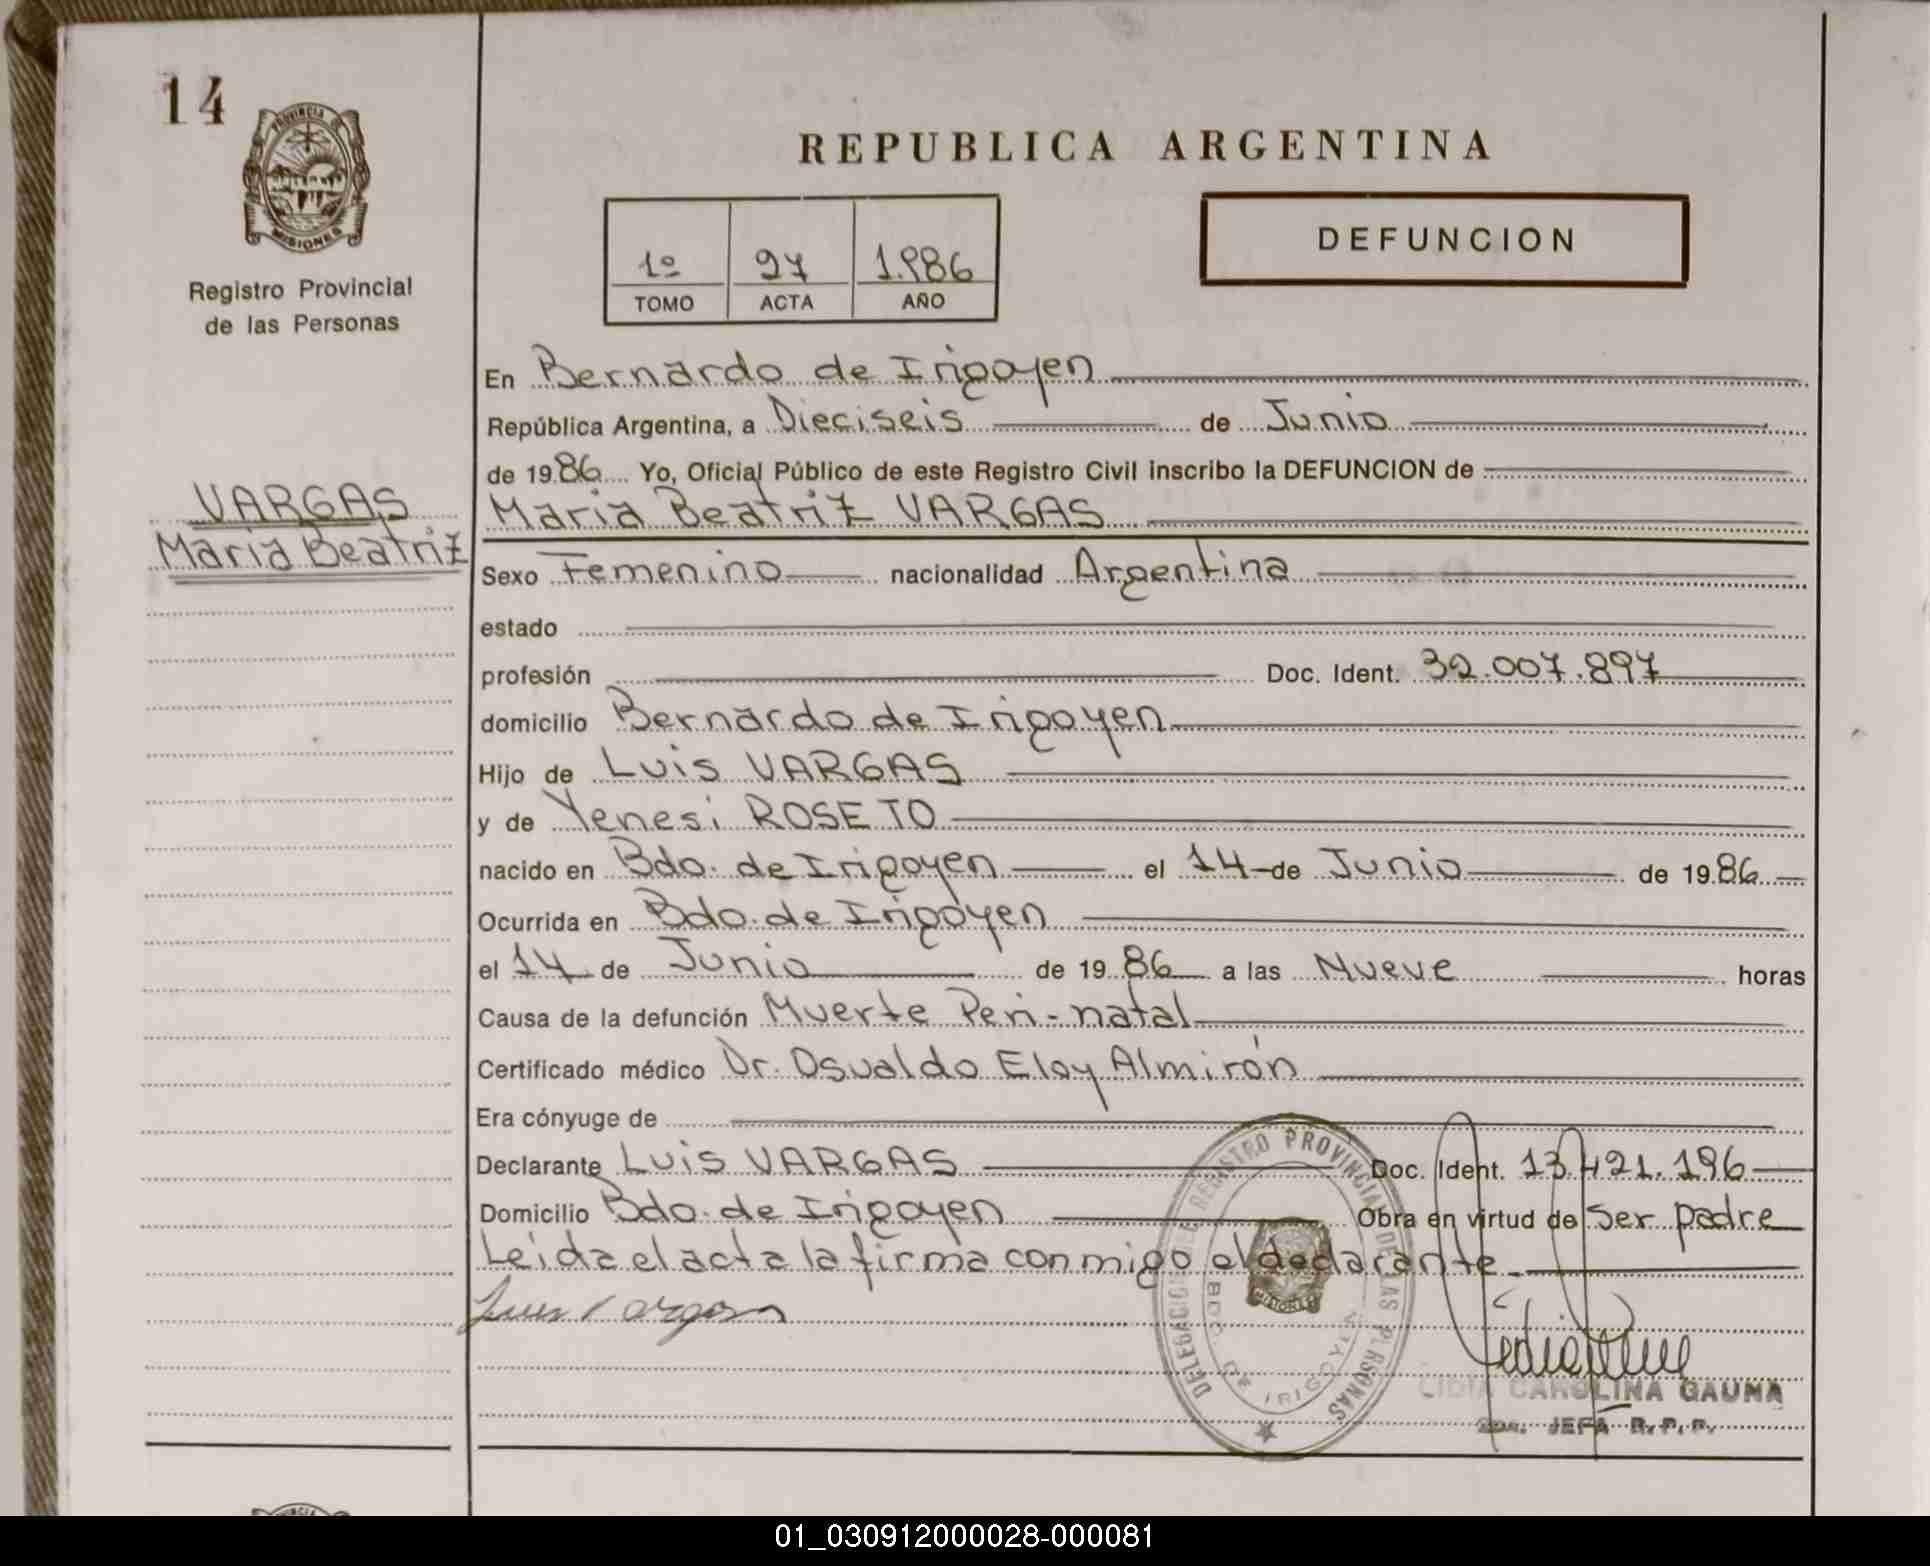 14
PROVINCIA DE
MISIONES
Registro Provincial
de las Personas
VARGAS
Maria Beatriz
REPUBLICA ARGENTINA
1º 27 1.986
TOMO ACTA AÑO
DEFUNCION
En Bernardo de Irigoyen
República Argentina, a Dieciseis de Junio
de 1986 Yo, Oficial Público de este Registro Civil inscribo la DEFUNCION de
Maria Beatriz VARGAS
Sexo Femenino nacionalidad Argentina
estado
profesión Doc. Ident. 32.007.897
domicilio Bernardo de Irigoyen
Hijo de Luis VARGAS
y de Yenesi ROSETO
nacido en Bdo. de Irigoyen el 14 de Junio de 1986
Ocurrida en Bdo. de Irigoyen
el 14 de Junio de 1986 a las Nueve horas
Causa de la defunción Muerte Peri-natal
Certificado médico Dr. Osvaldo Eloy Almirón
Era cónyuge de
Declarante Luis VARGAS Doc. Ident. 13.421.196
Domicilio Bdo. de Irigoyen Obra en virtud de Ser padre
Leida el acta la firma conmigo el declarante
Luis Vargas
DELEGACION REGISTRO PROVINCIAL DE LAS PERSONAS
BDO DE IRIGOYEN
MISIONES
LIDIA CAROLINA GAUNA
2da. JEFA R.P.P.
01_030912000028-000081